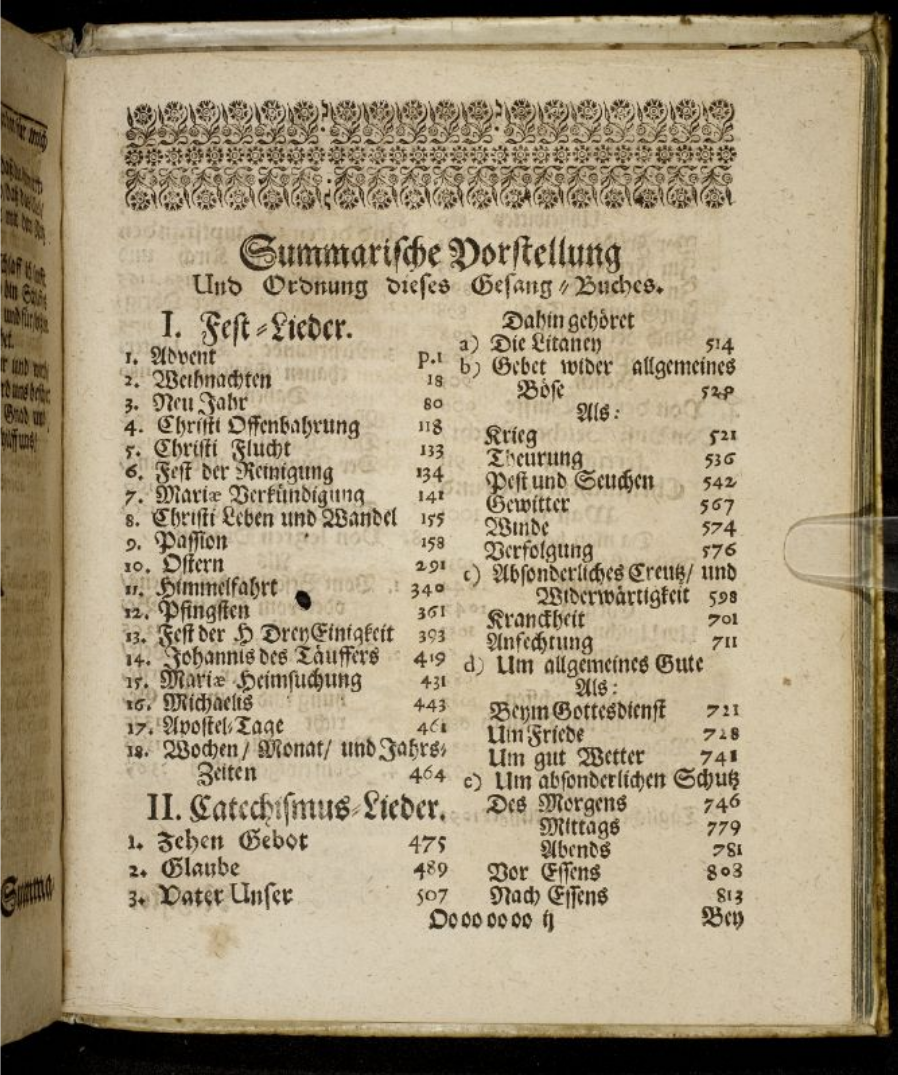 Summarische Vorstellung
Und Ordnung dieses Gesang⸗Buches.
I. Fest⸗Lieder.
1. Advent p.1
2. Weihnachten 18
3. Neu Jahr 80
4. Christi Offenbahrung 118
5. Christi Flucht 133
6. Fest der Reinigung 134
7. Mariæ Verkündigung 141
8. Christi Leben und Wandel 155
9. Passion 158
10. Ostern 291
11. Himmelfahrt 340
12. Pfingsten 361
13. Fest der H DreyEinigkeit 393
14. Johannis des Täuffers 419
15. Mariæ Heimsuchung 431
16. Michaelis 443
17. Apostel⸗Tage 461
18. Wochen/ Monat/ und Jahrs⸗
Zeiten 464
II. Catechismus⸗Lieder.
1. Zehen Gebot 475
2. Glaube 489
3. Vater Unser 507
Dahin gehöret
a) Die Litaney 514
b) Gebet wider allgemeines
Böse 520
Als:
Krieg 521
Theurung 536
Pest und Seuchen 542
Gewitter 567
Winde 574
Verfolgung 576
c) Absonderliches Creutz/ und
Widerwärtigkeit 598
Kranckheit 701
Anfechtung 711
d) Um allgemeines Gute
Als:
Beym Gottesdienst 721
Um Friede 728
Um gut Wetter 741
e) Um absonderlichen Schutz
Des Morgens 746
Mittags 779
Abends 781
Vor Essens 808
Nach Essens 813
Oo oo oo oo ij Bey
Summa⸗